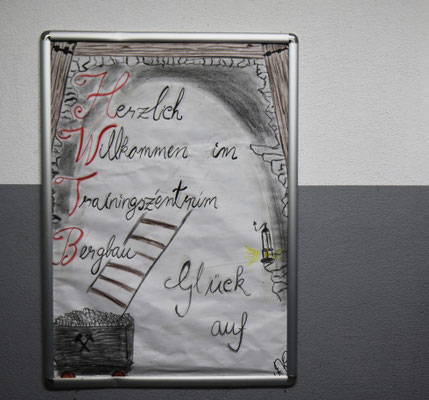 Herzlich
Willkommen im
Trainingszentrum
Bergbau
Glück
auf